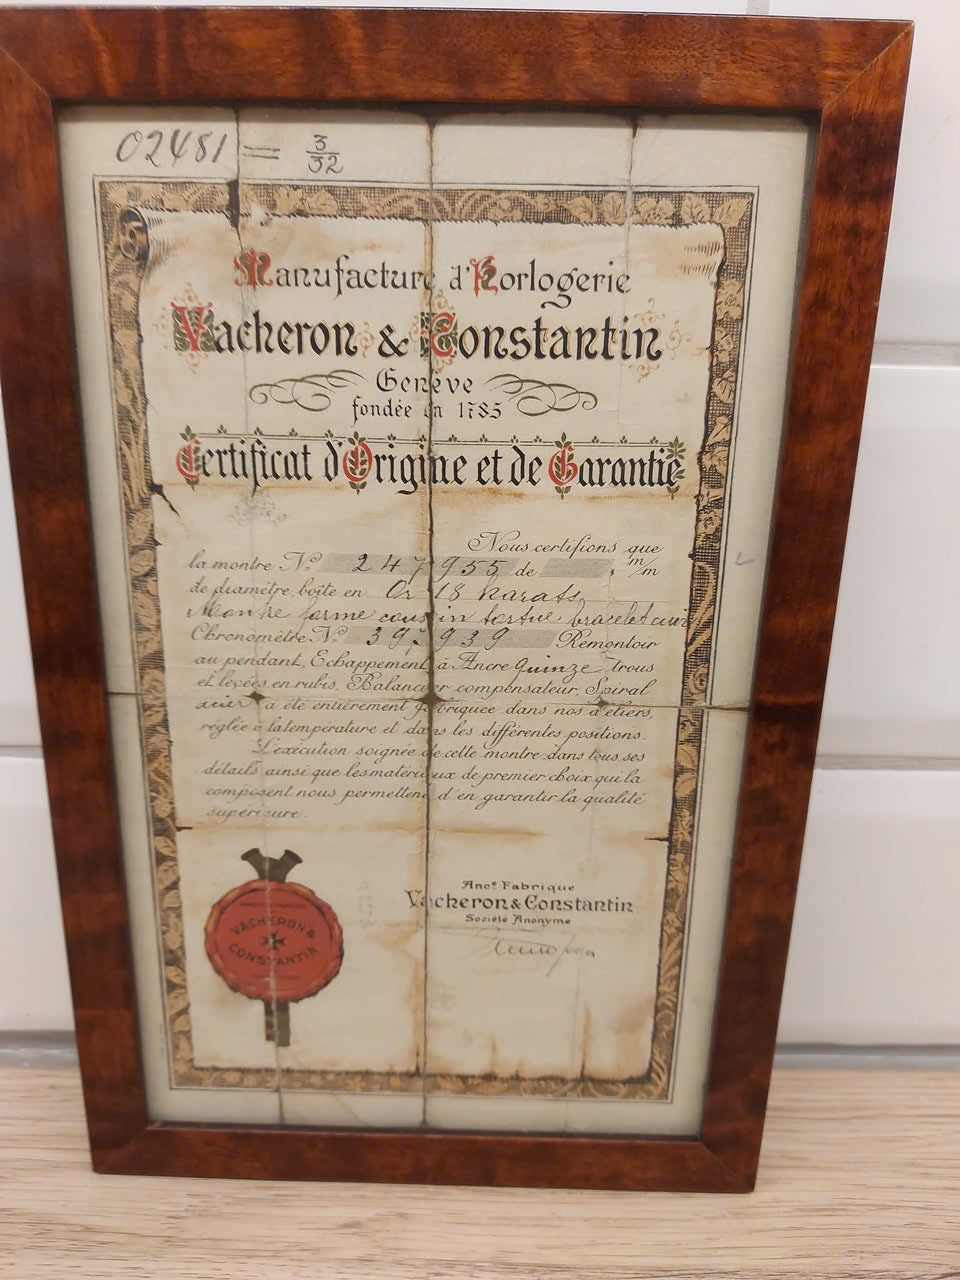 02481 = 3/32
Manufacture d'Horlogerie
Vacheron & Constantin
Genève
fondée en 1785
Certificat d'Origine et de Garantie
Nous certifions que
la montre No 247955 de m/m
de diamètre, boîte en Or 18 karats
Montre forme coussin tortue bracelet cuir
Chronomètre No 397939 Remontoir
au pendant, Echappement à Ancre quinze trous
et levées en rubis, Balancier compensateur, Spiral
acier a été entièrement fabriquée dans nos ateliers,
réglée à la température et dans les différentes positions.
L'exécution soignée de cette montre dans tous ses
détails ainsi que les matériaux de premier choix qui la
composent nous permettent d'en garantir la qualité
supérieure.
Ance Fabrique
Vacheron & Constantin
Société Anonyme
VACHERON &
CONSTANTIN